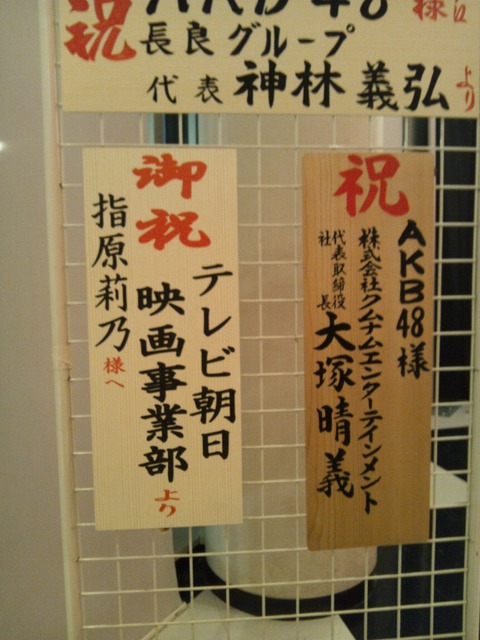 祝
AKB48
様江
長良グループ
代表 神林義弘
より
祝
AKB48様
株式会社クムナムエンターテインメント
代表取締役
社長
大塚晴義
御祝
テレビ朝日
映画事業部
より
指原莉乃
様へ